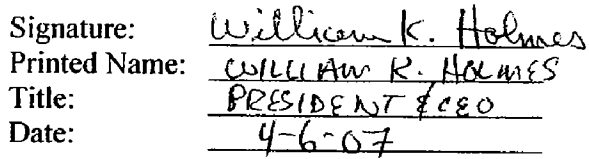 Signature: William K. Holmes
Printed Name: WILLIAM K. HOLMES
Title: PRESIDENT & CEO
Date: 4-6-07